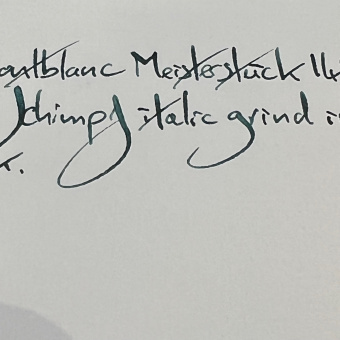 ontblanc Meisterstück 14
Schimpf italic grind i
k.